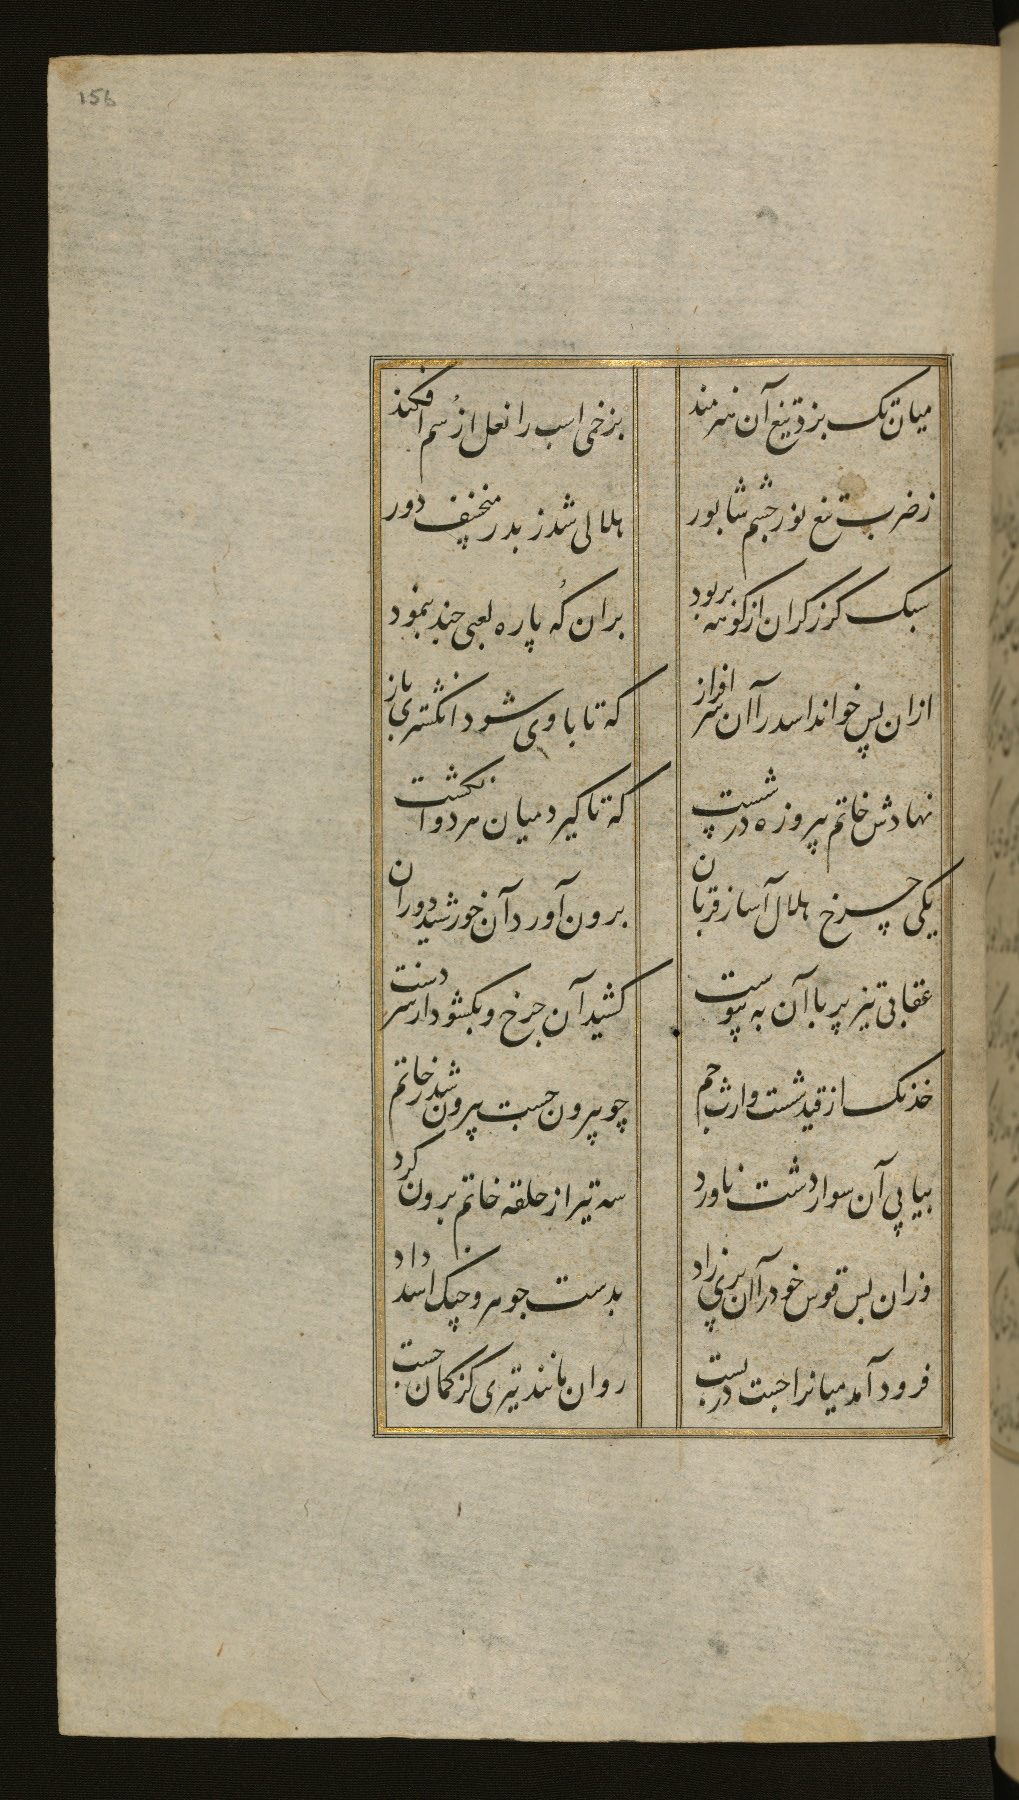 156
میان تک بزد تیغ آن هنرمند
بزخمی اسب را نعل از سم افکند
ز ضرب تیغ نور چشم شاپور
هلالی شد ز بدر منخسف دور
سبک گرز گران از کوهه بربود
بران که پاره لعبی چند بنمود
ازان پس خواند اسد را آن سرافراز
که تا با وی شود انگشتری باز
نهادش خاتم پیروزه در شست
که تا گیرد میان هر دو انگشت
یکی چرخ هلال آسا ز قربان
برون آورد آن خورشید دوران
عقابی تیز پر با آن به پیوست
کشید آن چرخ و بکشود از سر دست
خدنک از قید شست وارث جم
چو پیرون جست پیرون شد ز خاتم
بیاپی آن سوار دشت ناورد
سه تیر از حلقه خاتم برون کرد
وزان پس قوس خود را آن پری زاد
بدست جوهر و چنک اسد داد
فرود آمد میانرا جست در بست
روان مانند تیری کز کمان جست